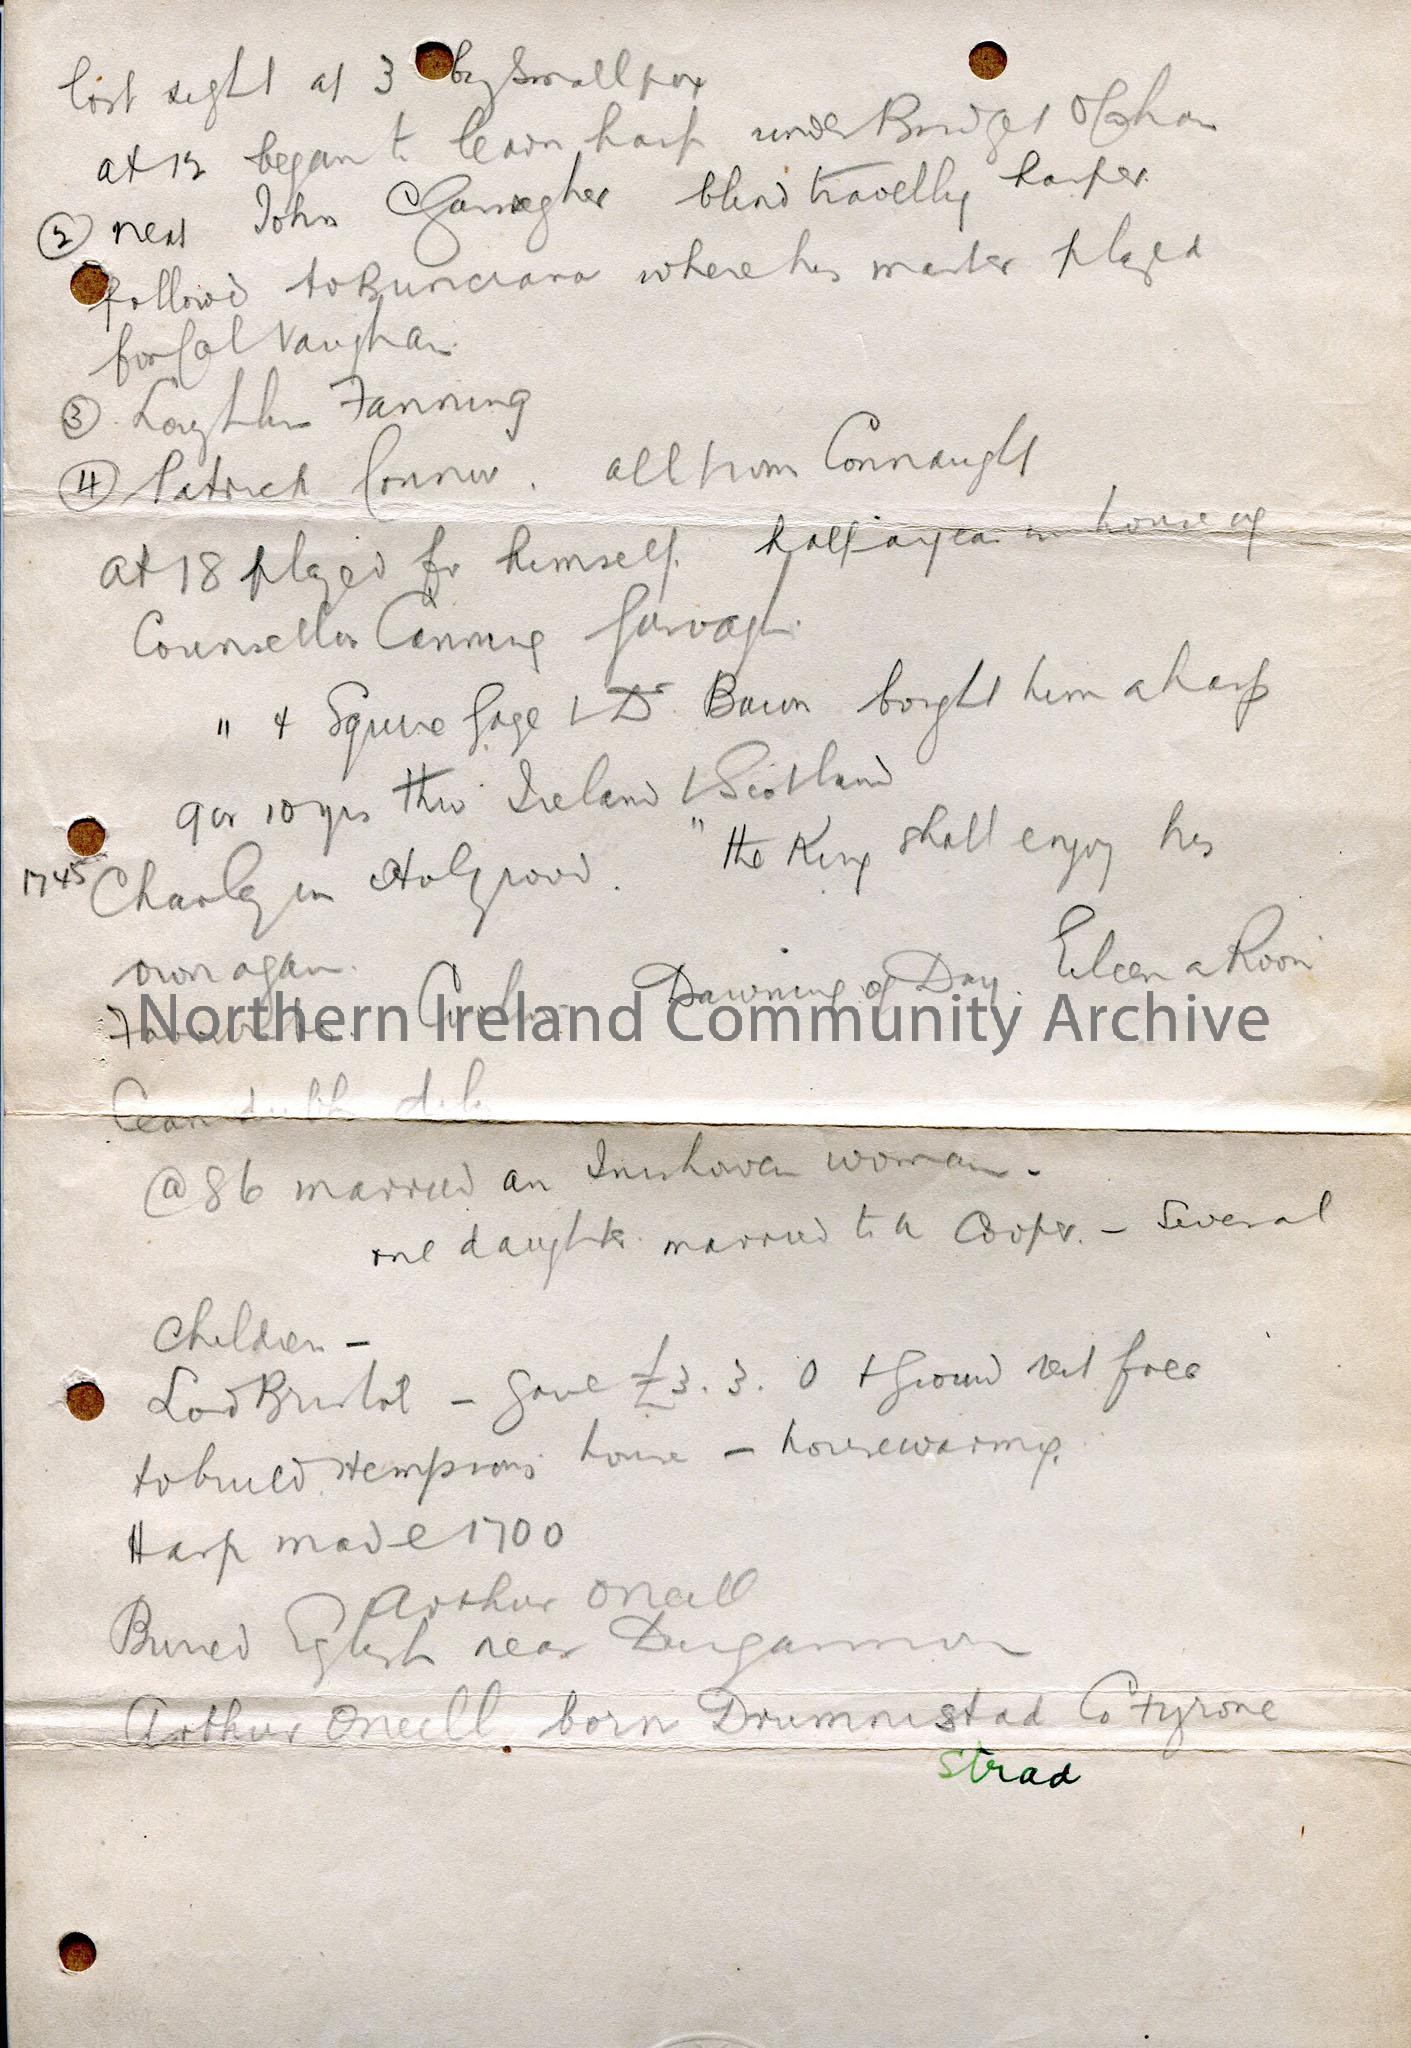 lost sight at 3 by Smallpox
at 12 began to learn harp under Bridget O'Cahan
② next John Garragher blind travelling harper
followd to Buncrana where his master played
for Col Vaughan
③ Loughlin Fanning
④ Patrick Connor. all from Connaught
at 18 played for himself. half a year in house of
Counsellor Canning Garvagh.
" & Squire Gage & Dr Bacon bought him a harp
9 or 10 yrs thro Ireland & Scotland
1745 Charley in Holyrood. "the King shall enjoy his
own again.
Dawning of Day. Eileen a Roon
Northern Ireland Community Archive
Cean dubh
@ 86 married an Inishowen woman -
one daughter married to a Cooper. - Several
Children -
Lord Bristol - gave £3. 3. 0 & ground rent free
to build Hempsons house - housewarming.
Harp made 1700
Arthur ONeill
Buried Eglish near Dungannon
Arthur ONeill born Drumnistad Co Tyrone
strad